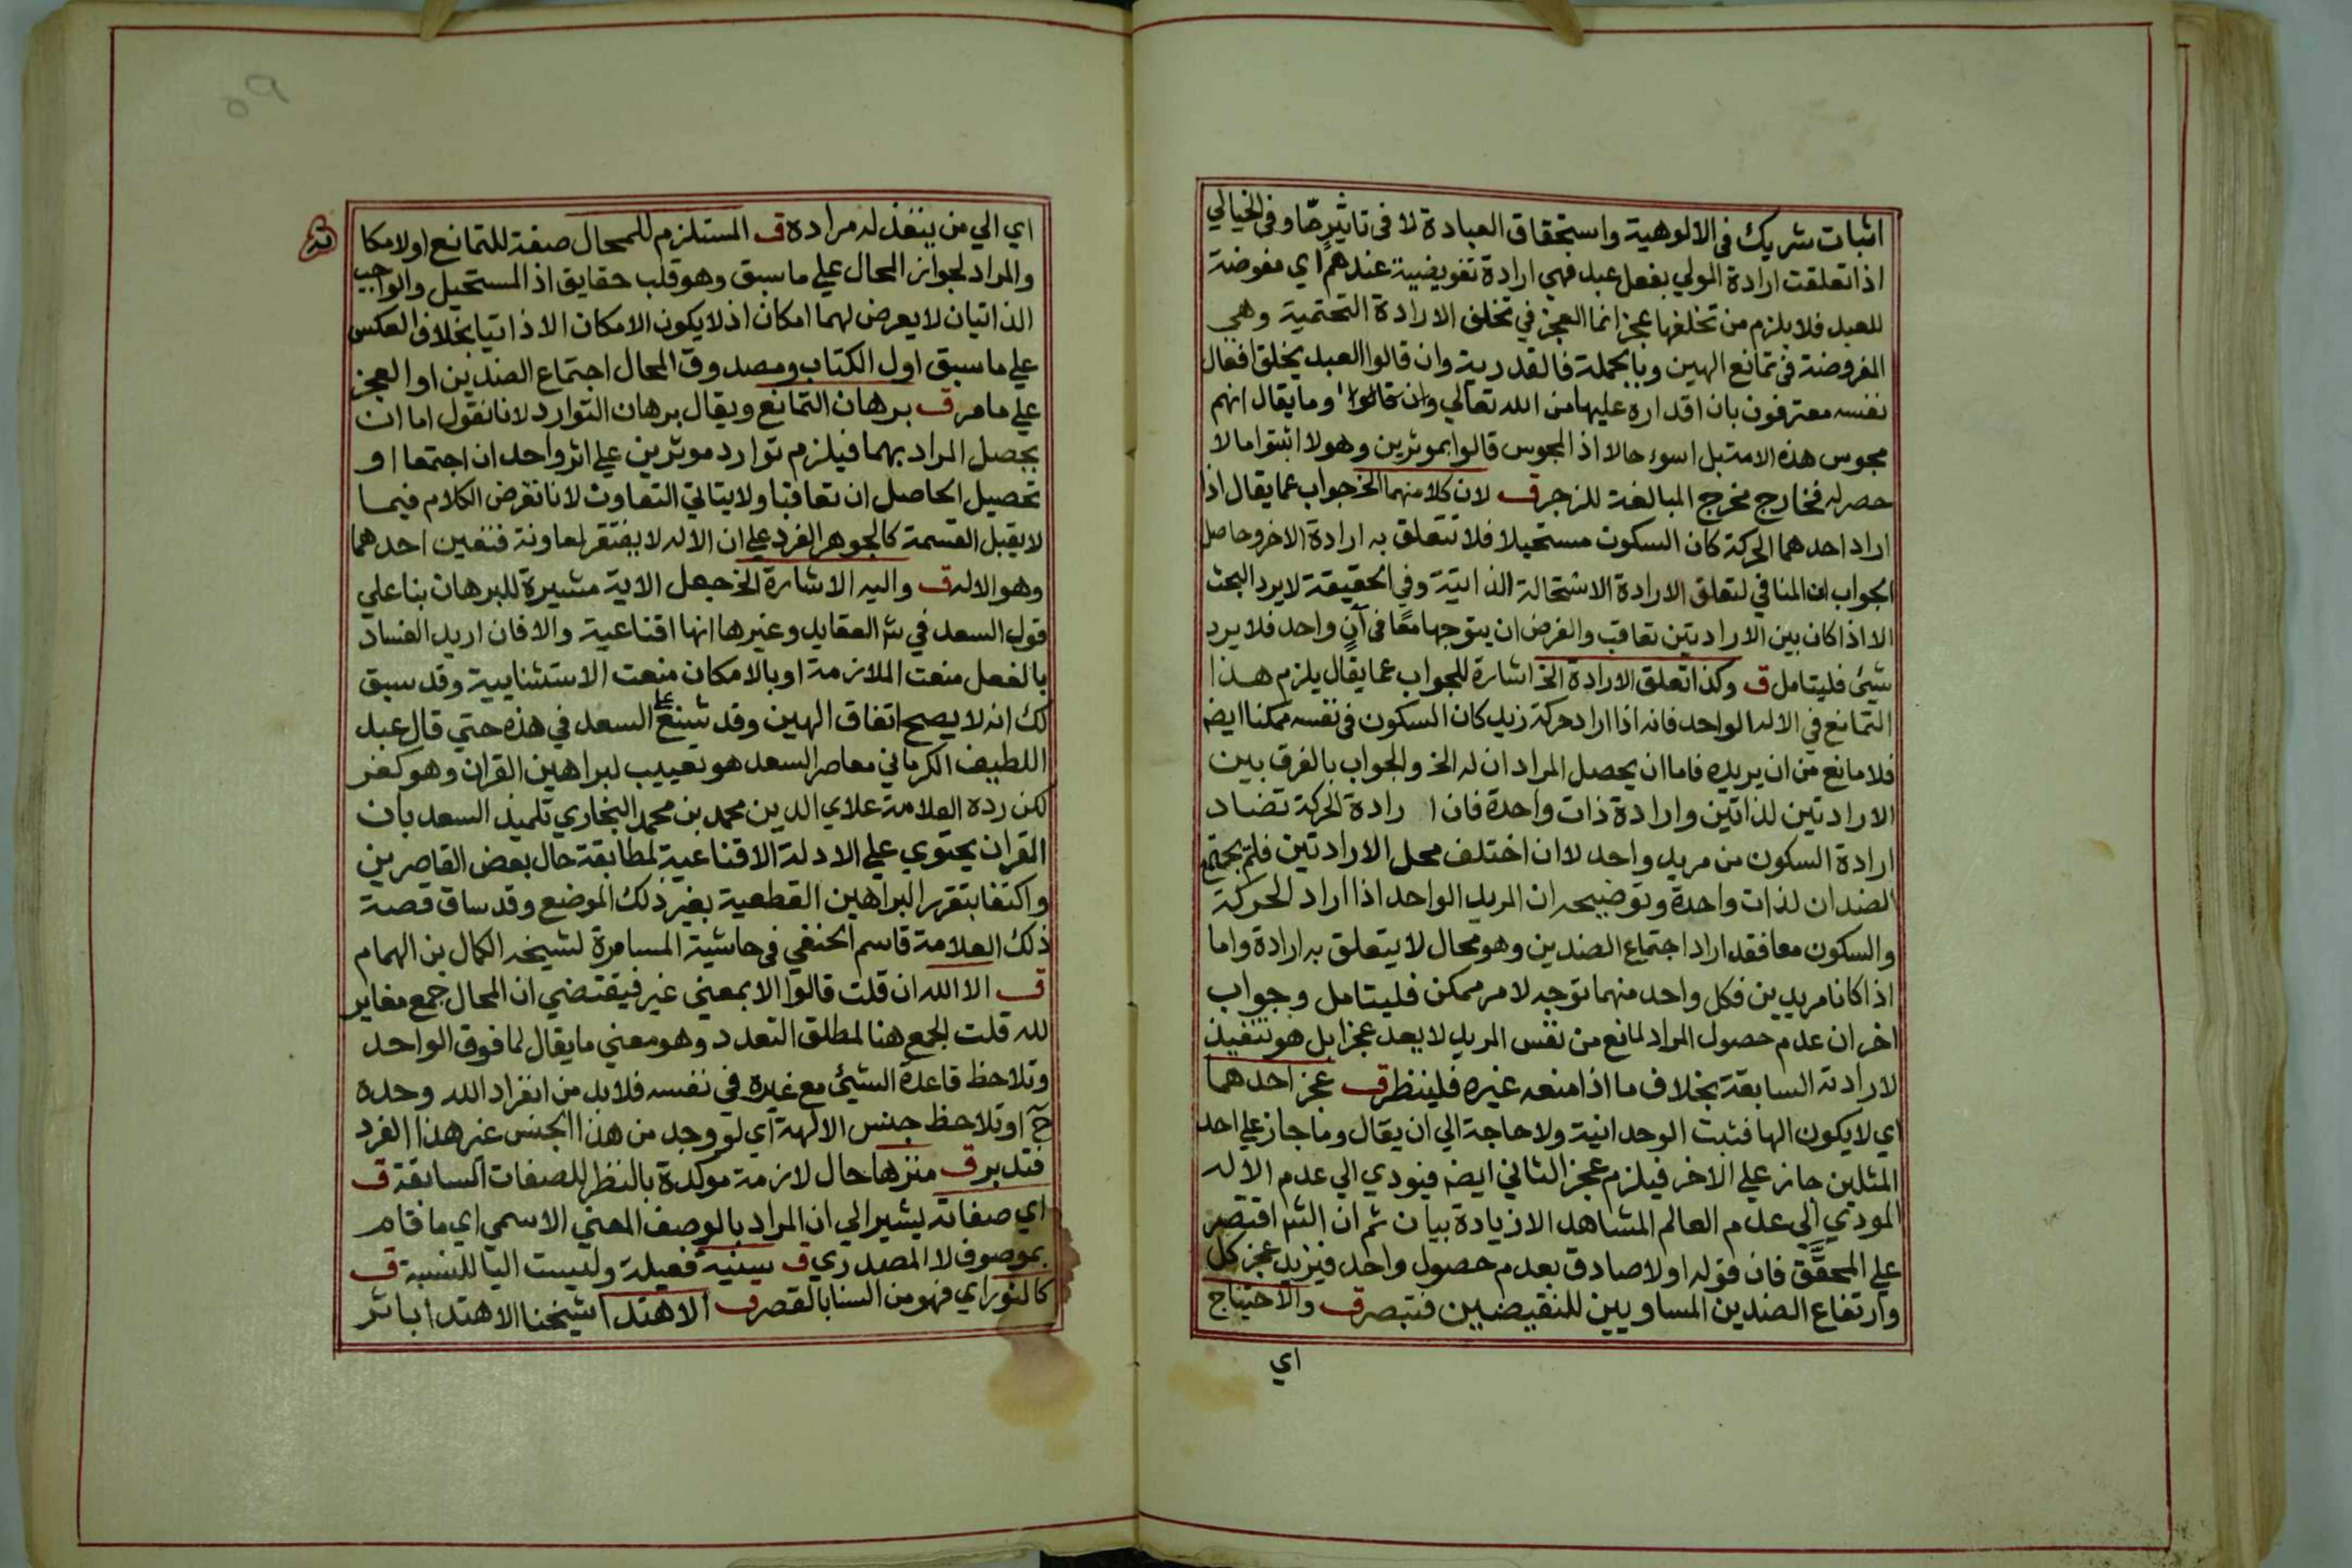 اثبات شريك في الالوهية واستحقاق العبادة لا في تاثيرهما وفي الخيالي
اذا تعلقت ارادة المولي بفعل عبد فهي ارادة تفويضية عندهم اي مفوضة
للعبد فلا يلزم من تخلفها عجز انما العجز في تخلف الارادة التحتمية وهي
المفروضة في تمانع الهين وبالجملة فالقدرية وان قالوا العبد يخلق افعال
نفسه معترفون بان اقداره عليها من الله تعالي وان قالوا وما يقال انهم
مجوس هذه الامة بل اسوء حالا اذ المجوس قالوا بموثرين وهولا اثبتوا ما لا
حصر له فخارج مخرج المبالغة للزجر ق لان كلا منهما الخ جواب عما يقال اذا
اراد احدهما الحركة كان السكون مستحيلا فلا تتعلق به ارادة الاخر وحاصل
الجواب ان المنافي لتعلق الارادة الاستحالة الذاتية وفي الحقيقة لا يرد البحث
الا اذا كان بين الارادتين تعاقب والفرض ان يتوجها معًا في آنٍ واحد فلا يرد
شيئ فليتامل ق وكذا تعلق الارادة الخ اشارة للجواب عما يقال يلزم هذا
التمانع في الاله الواحد فانه اذا اراد حركة زيد كان السكون في نفسه ممكنا ايض
فلا مانع من ان يريده فاما ان يحصل المراد ان له الخ والجواب بالفرق بين
الارادتين لذاتين وارادة ذات واحدة فان ا رادة الحركة تضاد
ارادة السكون من مريد واحد لا ان اختلف محل الارادتين فلم يجتمع
الضدان لذات واحدة وتوضيحه ان المريد الواحد اذا اراد الحركة
والسكون معا فقد اراد اجتماع الضدين وهو محال لا يتعلق به ارادة واما
اذا كانا مريدين فكل واحد منهما توجه لامر ممكن فليتامل وجواب
اخر ان عدم حصول المراد لمانع من نفس المريد لا يعد عجزا بل هو تنفيذ
لارادته السابقة بخلاف ما اذا منعه غيره فلينظر ق عجز احدهما
اي لا يكون الها فثبت الوحدانية ولا حاجة الي ان يقال وما جاز علي احد
المثلين جاز علي الاخر فيلزم عجز الثاني ايض فيودي الي عدم الاله
المودي الي عدم العالم المشاهد الا زيادة بيان ثم ان الش اقتصر
علي المحقَّق فان قوله او لا صادق بعدم حصول واحد فيزيد عجز كل
وارتفاع الضدين المساويين للنقيضين فتبصر ق والاحتياج
اي
٥٩
اي الي من ينفذ له مراده ق المستلزم للمحال صفة للتمانع او لامكا
نه
والمراد لجواز المحال علي ما سبق وهو قلب حقايق اذ المستحيل والواجب
الذاتيان لا يعرض لهما امكان اذ لا يكون الامكان الا ذاتيا بخلاف العكس
علي ما سبق اول الكتاب ومصدوق المحال اجتماع الضدين او العجز
علي ما مر ق برهان التمانع ويقال برهان التوارد لانا نقول اما ان
يحصل المراد بهما فيلزم توارد موثرين علي اثر واحد ان اجتمعا او
تحصيل الحاصل ان تعاقبا ولا يتاتي التعاون لانا نفرض الكلام فيما
لا يقبل القسمة كالجوهر الفرد علي ان الاله لا يفتقر لمعاونة فتعين احدهما
وهو الاله ق واليه الاشارة الخ جعل الاية مشيرة للبرهان بنا علي
قول السعد في شر العقايد وغيرها انها اقناعية والا فان اريد الفساد
بالفعل منعت الملازمة او بالامكان منعت الاستثنايية وقد سبق
لك انه لا يصح اتفاق الهين وقد شنع علي السعد في هذه حتي قال عبد
اللطيف الكرماني معاصر السعد هو تعييب لبراهين القران وهو كفر
لكن رده العلامة علاي الدين محمد بن محمد البخاري تلميذ السعد بان
القران يحتوي علي الادلة الاقناعية لمطابقة حال بعض القاصرين
واكتفا بتقرير البراهين القطعية بغير ذلك الموضع وقد ساق قصة
ذلك العلامة قاسم الحنفي في حاشية المسامرة لشيخه الكمال بن الهمام
ق الا الله ان قلت قالوا الا بمعني غير فيقتضي ان المحال جمع مغاير
لله قلت الجمع هنا لمطلق التعدد وهو معني ما يقال لما فوق الواحد
وتلاحظ قاعدة الشيئ مع غيره في نفسه فلا بد من انفراد الله وحده
ح او تلاحظ جنس الالهة اي لو وجد من هذا الجنس غير هذا الفرد
فتدبر ق منزها حال لازمة موكدة بالنظر للصفات السابقة ق
اي صفاته يشير الي ان المراد بالوصف المعني الاسمي اي ما قام
بموصوف لا المصدري ق سنية فعيلة وليست اليا للنسبة ق
كالنور اي فهو من السنا بالقصر ق الاهتدا شيخنا الاهتدا باثر